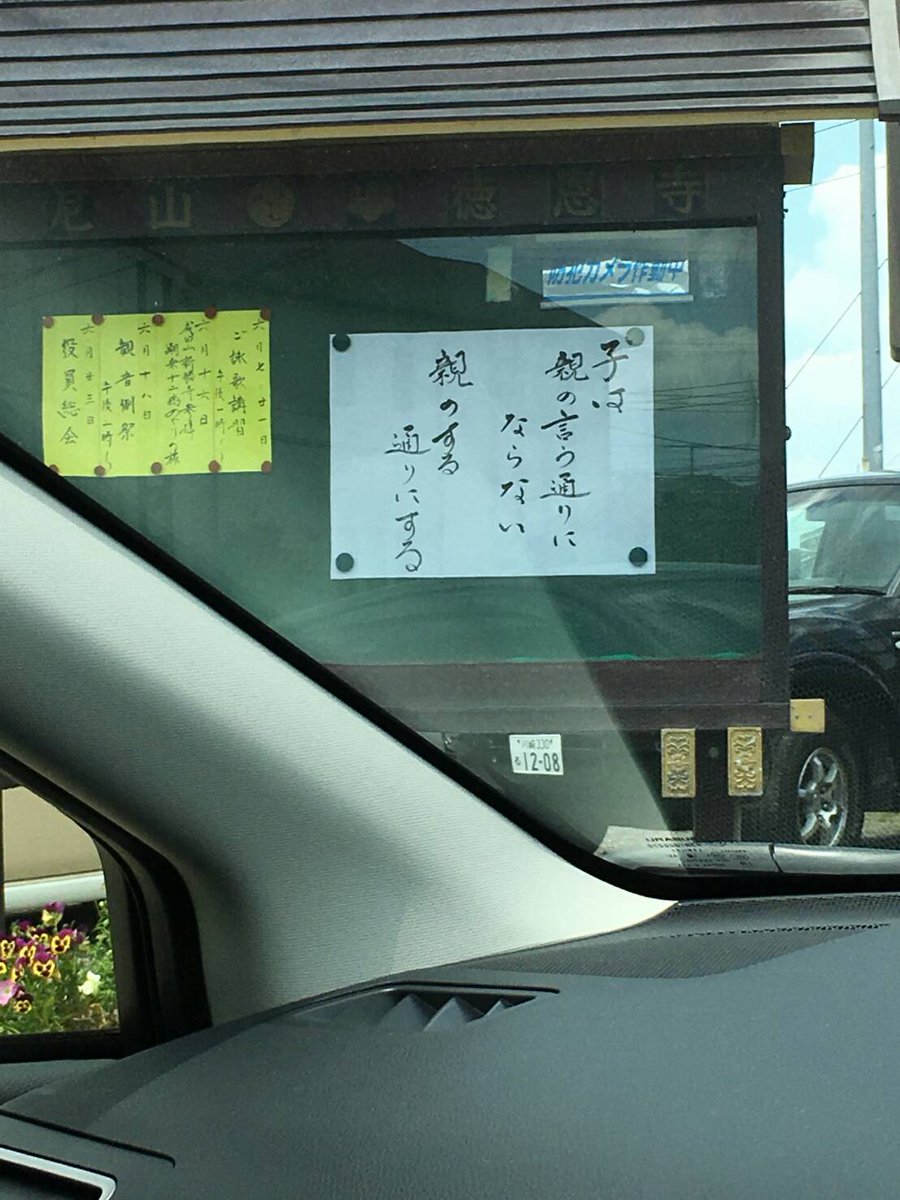 尼山 徳恩寺
防犯カメラ作動中
子は
親の言う通りに
ならない
親のする
通りにする
六月七 廿一日
ご詠歌講習
午後一時〜
六月十六日
六月十八日
観音例祭
午後一時〜
六月廿三日
役員総会
川崎 330
12-08